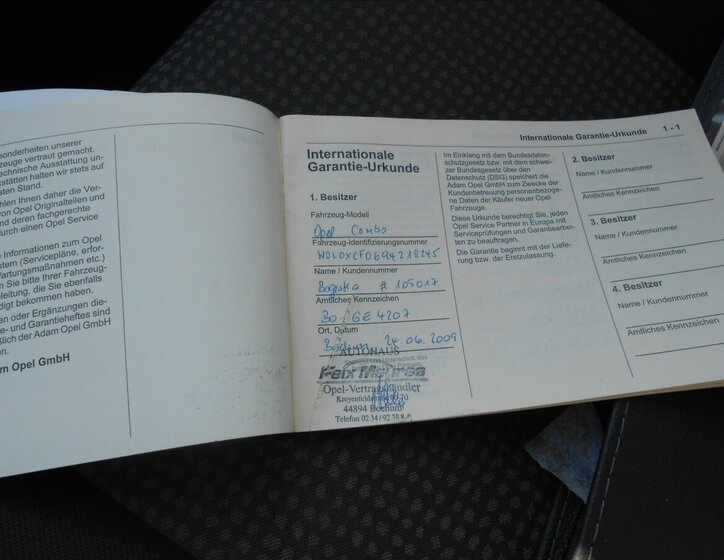 sonderheiten unserer
zeuge vertraut gemacht.
technische Ausstattung un-
kstätten halten wir stets auf
sten Stand.
hlen Ihnen daher die Ver-
von Originalteilen und
deren fachgerechte
durch einen Opel Service
e Informationen zum Opel
stem (Servicepläne, erfor-
Wartungsmaßnahmen etc.)
n Sie bitte Ihrer Fahrzeug-
leitung, die Sie ebenfalls
digt bekommen haben.
en oder Ergänzungen die-
e- und Garantieheftes sind
ßlich der Adam Opel GmbH
en.
am Opel GmbH
Internationale Garantie-Urkunde 1 - 1
Internationale
Garantie-Urkunde
1. Besitzer
Fahrzeug-Modell
Opel Combo
Fahrzeug-Identifizierungsnummer
W0L0XCF0694218245
Name / Kundennummer
# 105017
Amtliches Kennzeichen
Bo-GE 4207
Ort, Datum
Bochum 24.06.2009
AUTOHAUS
Opel-Vertragshändler
44894 Bochum
Telefon 02 34 / 92 38
Im Einklang mit dem Bundesdaten-
schutzgesetz bzw. mit dem schwei-
zer Bundesgesetz über den
Datenschutz (DSG) speichert die
Adam Opel GmbH zum Zwecke der
Kundenbetreuung personenbezoge-
ne Daten der Käufer neuer Opel
Fahrzeuge.
Diese Urkunde berechtigt Sie, jeden
Opel Service Partner in Europa mit
Serviceprüfungen und Garantiearbei-
ten zu beauftragen.
Die Garantie beginnt mit der Liefe-
rung bzw. der Erstzulassung.
2. Besitzer
Name / Kundennummer
Amtliches Kennzeichen
3. Besitzer
Name / Kundennummer
Amtliches Kennzeichen
4. Besitzer
Name / Kundennummer
Amtliches Kennzeichen